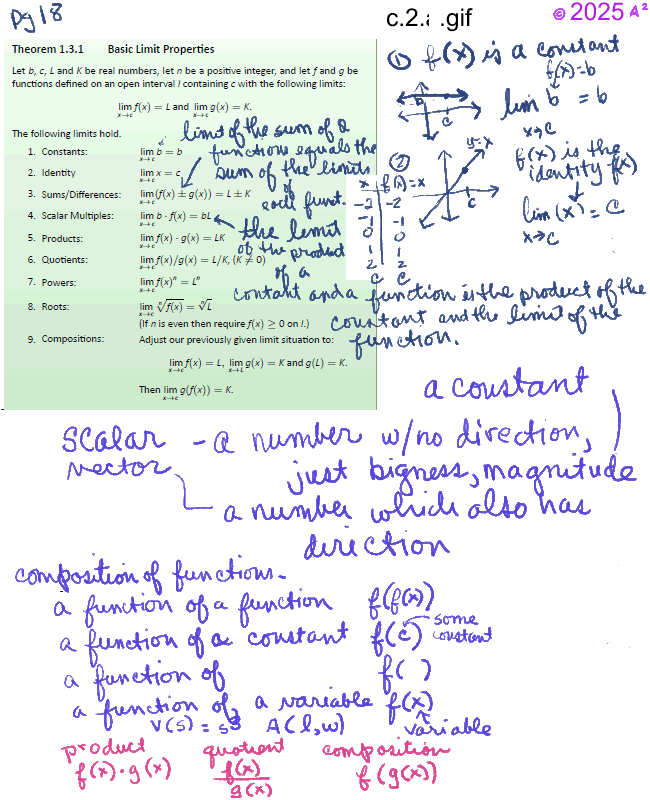 Pg 18
c.2.: .gif
© 2025 A²
Theorem 1.3.1 Basic Limit Properties
Let b, c, L and K be real numbers, let n be a positive integer, and let f and g be
functions defined on an open interval I containing c with the following limits:
lim x→c f(x) = L and lim x→c g(x) = K.
The following limits hold.
1. Constants: lim x→c b = b
2. Identity lim x→c x = c
3. Sums/Differences: lim x→c (f(x) ± g(x)) = L ± K
4. Scalar Multiples: lim x→c b · f(x) = bL
5. Products: lim x→c f(x) · g(x) = LK
6. Quotients: lim x→c f(x)/g(x) = L/K, (K ≠ 0)
7. Powers: lim x→c f(x)ⁿ = Lⁿ
8. Roots: lim x→c ⁿ√f(x) = ⁿ√L
(If n is even then require f(x) ≥ 0 on I.)
9. Compositions: Adjust our previously given limit situation to:
lim x→c f(x) = L, lim x→L g(x) = K and g(L) = K.
Then lim x→c g(f(x)) = K.
limit of the sum of 2
functions equals the
sum of the limits
of
each funct.
the limit
of the product
of a
contant and a function is the product of the
constant and the limit of the
function.
① f(x) is a constant
f(x)=b
lim b = b
x→c
b
c
② y=x
x f(x)=x
-2 -2
-1 -1
0 0
1 1
2 2
c c
c
f(x) is the
identity f(x)
lim (x) = c
x→c
a constant
scalar - a number w/no direction,
just bigness, magnitude
vector
a number which also has
direction
composition of functions -
a function of a function f(f(x))
a function of a constant f(c) some
constant
a function of f( )
a function of, a variable f(x)
V(s) = s³ A(l,w) variable
product quotient composition
f(x)·g(x) f(x)/g(x) f(g(x))